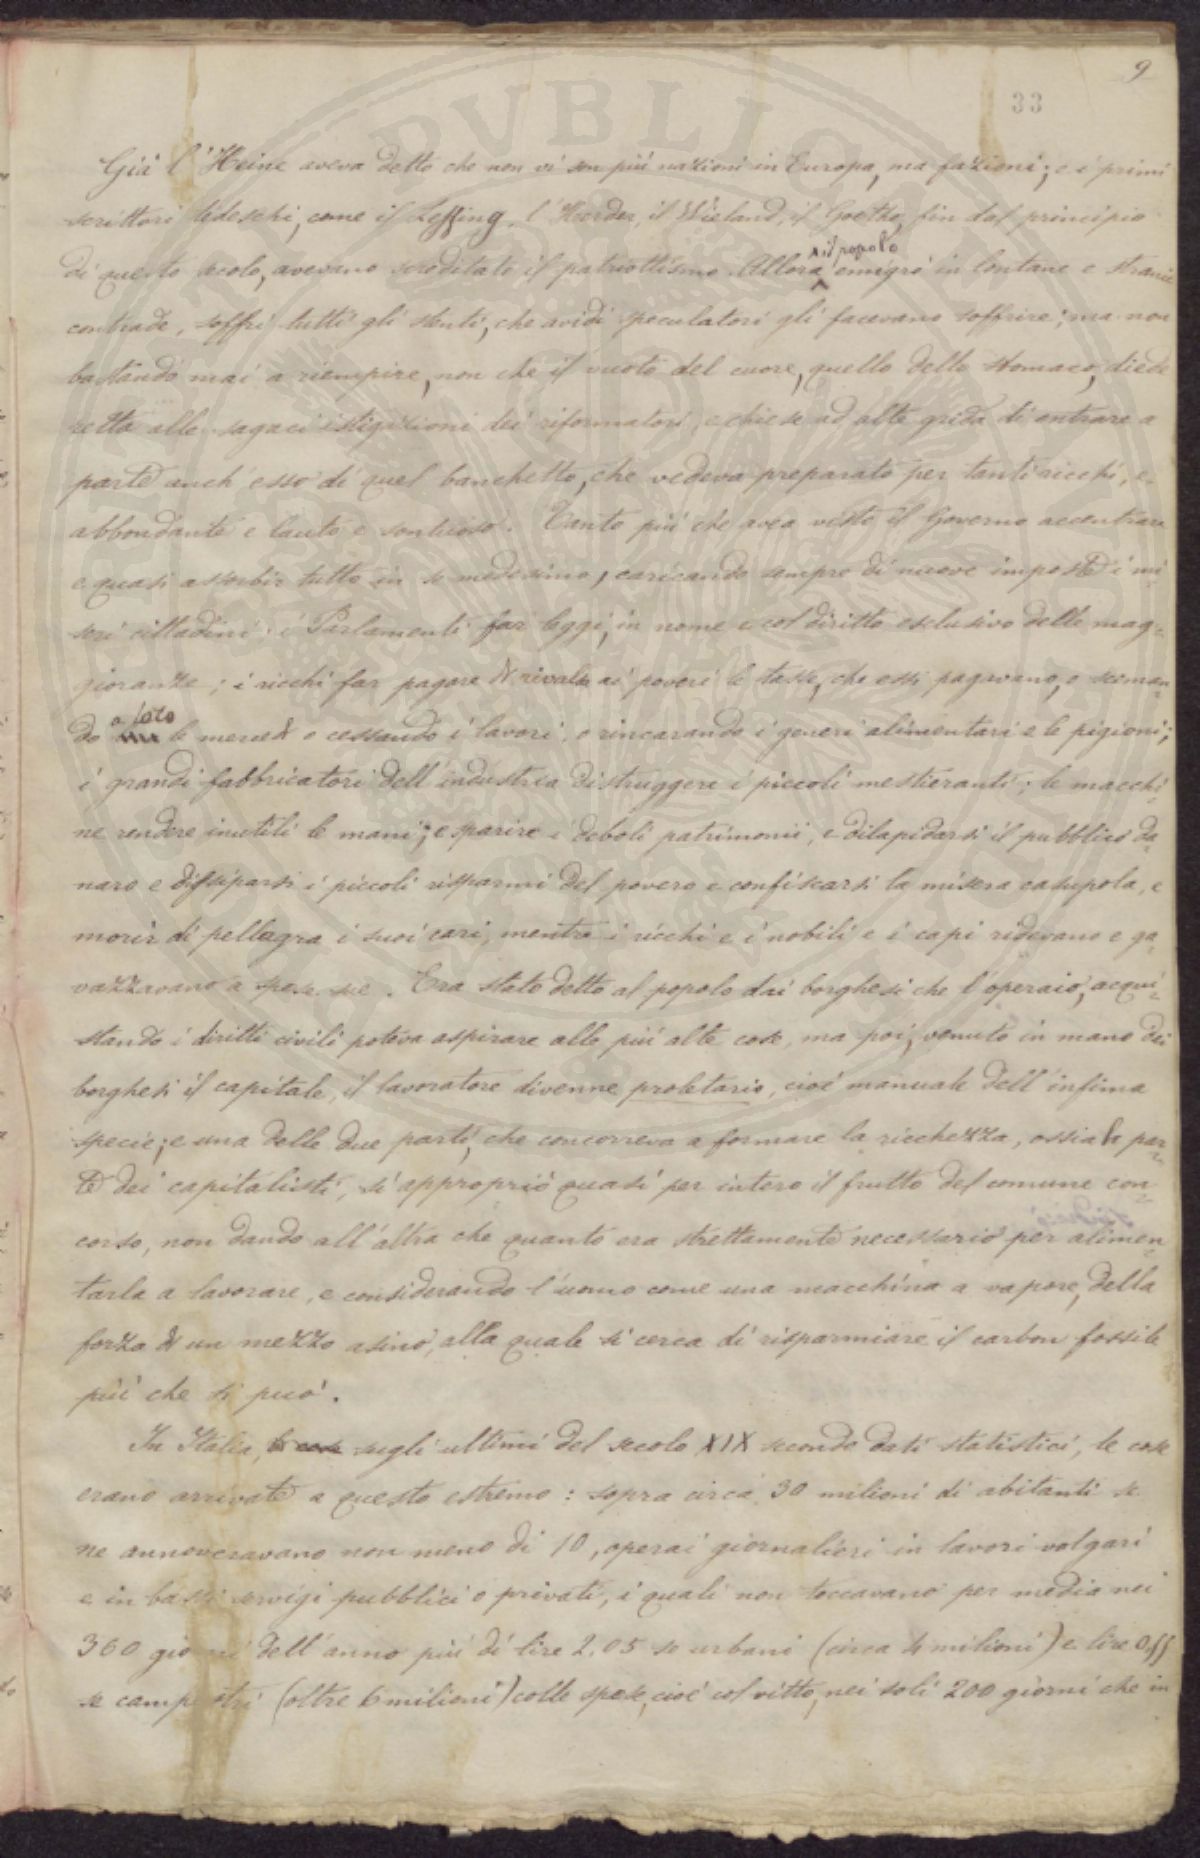 9
33
PVBLIC
Già l'Heine aveva detto che non vi son più nazioni in Europa, ma fazioni; e i primi
scrittori tedeschi, come il Lessing, l'Herder, il Wieland, il Goethe, fin dal principio
di questo secolo, avevano screditato il patriottismo. Allora il popolo emigrò in lontane e stranie
contrade, soffrì tutti gli stenti, che avidi speculatori gli facevano soffrire; ma non
bastando mai a riempire, non che il vuoto del cuore, quello dello stomaco, diede
retta alle sagaci istigazioni dei riformatori, e chiese ad alte grida di entrare a
parte anch'esso di quel banchetto, che vedeva preparato per tanti ricchi, e
abbondante e lauto e sontuoso. Tanto più che avea visto il Governo accentrare
e quasi assorbir tutto in se medesimo, caricando sempre di nuove imposte i mi
seri cittadini; i Parlamenti far leggi, in nome e col diritto esclusivo delle mag-
gioranze; i ricchi far pagare di rivalsa ai poveri le tasse, che essi pagavano, o sceman-
do a loro le mercedi o cessando i lavori, o rincarando i generi alimentari e le pigioni;
i grandi fabbricatori dell'industria distruggere i piccoli mestieranti; le macchi-
ne rendere inutili le mani; e sparire i deboli patrimonii, e dilapidarsi il pubblico da-
naro e dissiparsi i piccoli risparmi del povero e confiscarsi la misera casupola, e
morir di pellagra i suoi cari, mentre i ricchi e i nobili e i capi ridevano e ga-
vazzavano a spese sue. Era stato detto al popolo dai borghesi che l'operaio, acqui-
stando i diritti civili poteva aspirare alle più alte cose, ma poi, venuto in mano dei
borghesi il capitale, il lavoratore divenne proletario, cioè manuale dell'infima
specie; e una delle due parti, che concorreva a formare la ricchezza, ossia la par-
te dei capitalisti, si appropriò quasi per intero il frutto del comune con-
corso, non dando all'altra che quanto era strettamente necessario per alimen-
tarla a lavorare, e considerando l'uomo come una macchina a vapore, della
forza di un mezzo asino, alla quale si cerca di risparmiare il carbon fossile
più che si può.
In Italia, le cose negli ultimi del secolo XIX secondo dati statistici, le cose
erano arrivate a questo estremo: sopra circa 30 milioni di abitanti se
ne annoveravano non meno di 10, operai giornalieri in lavori volgari
e in bassi servigi pubblici o privati, i quali non toccavano per media nei
360 giorni dell'anno più di lire 2,05 se urbani (circa 4 milioni) e lire 0,55
se campestri (oltre 6 milioni) colle spese, cioè col vitto, nei soli 200 giorni che in